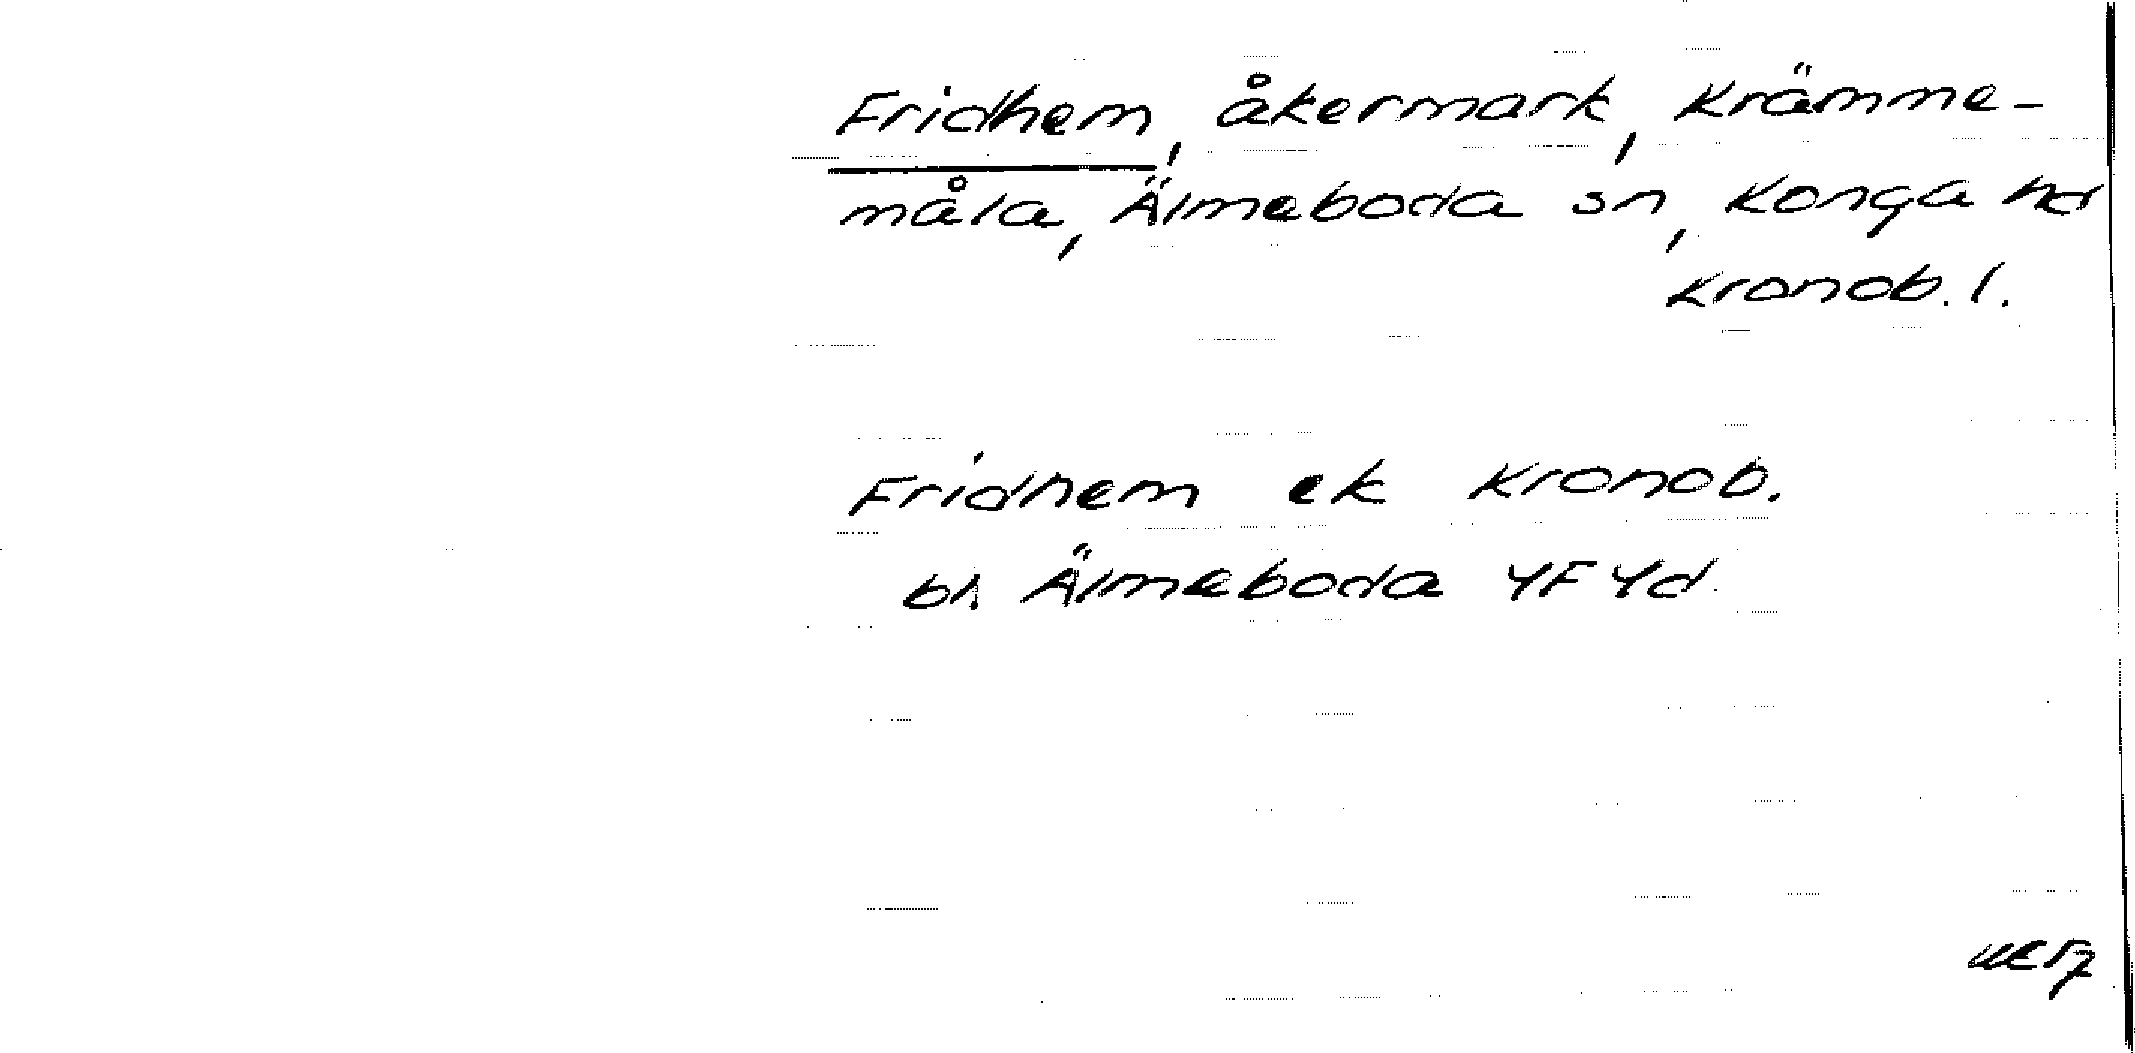 Fridhem, åkermark, Krämme-
måla, Älmeboda sn, Konga hd
Kronob. l.
Fridhem ek Kronob.
bl. Älmeboda 4F 4d